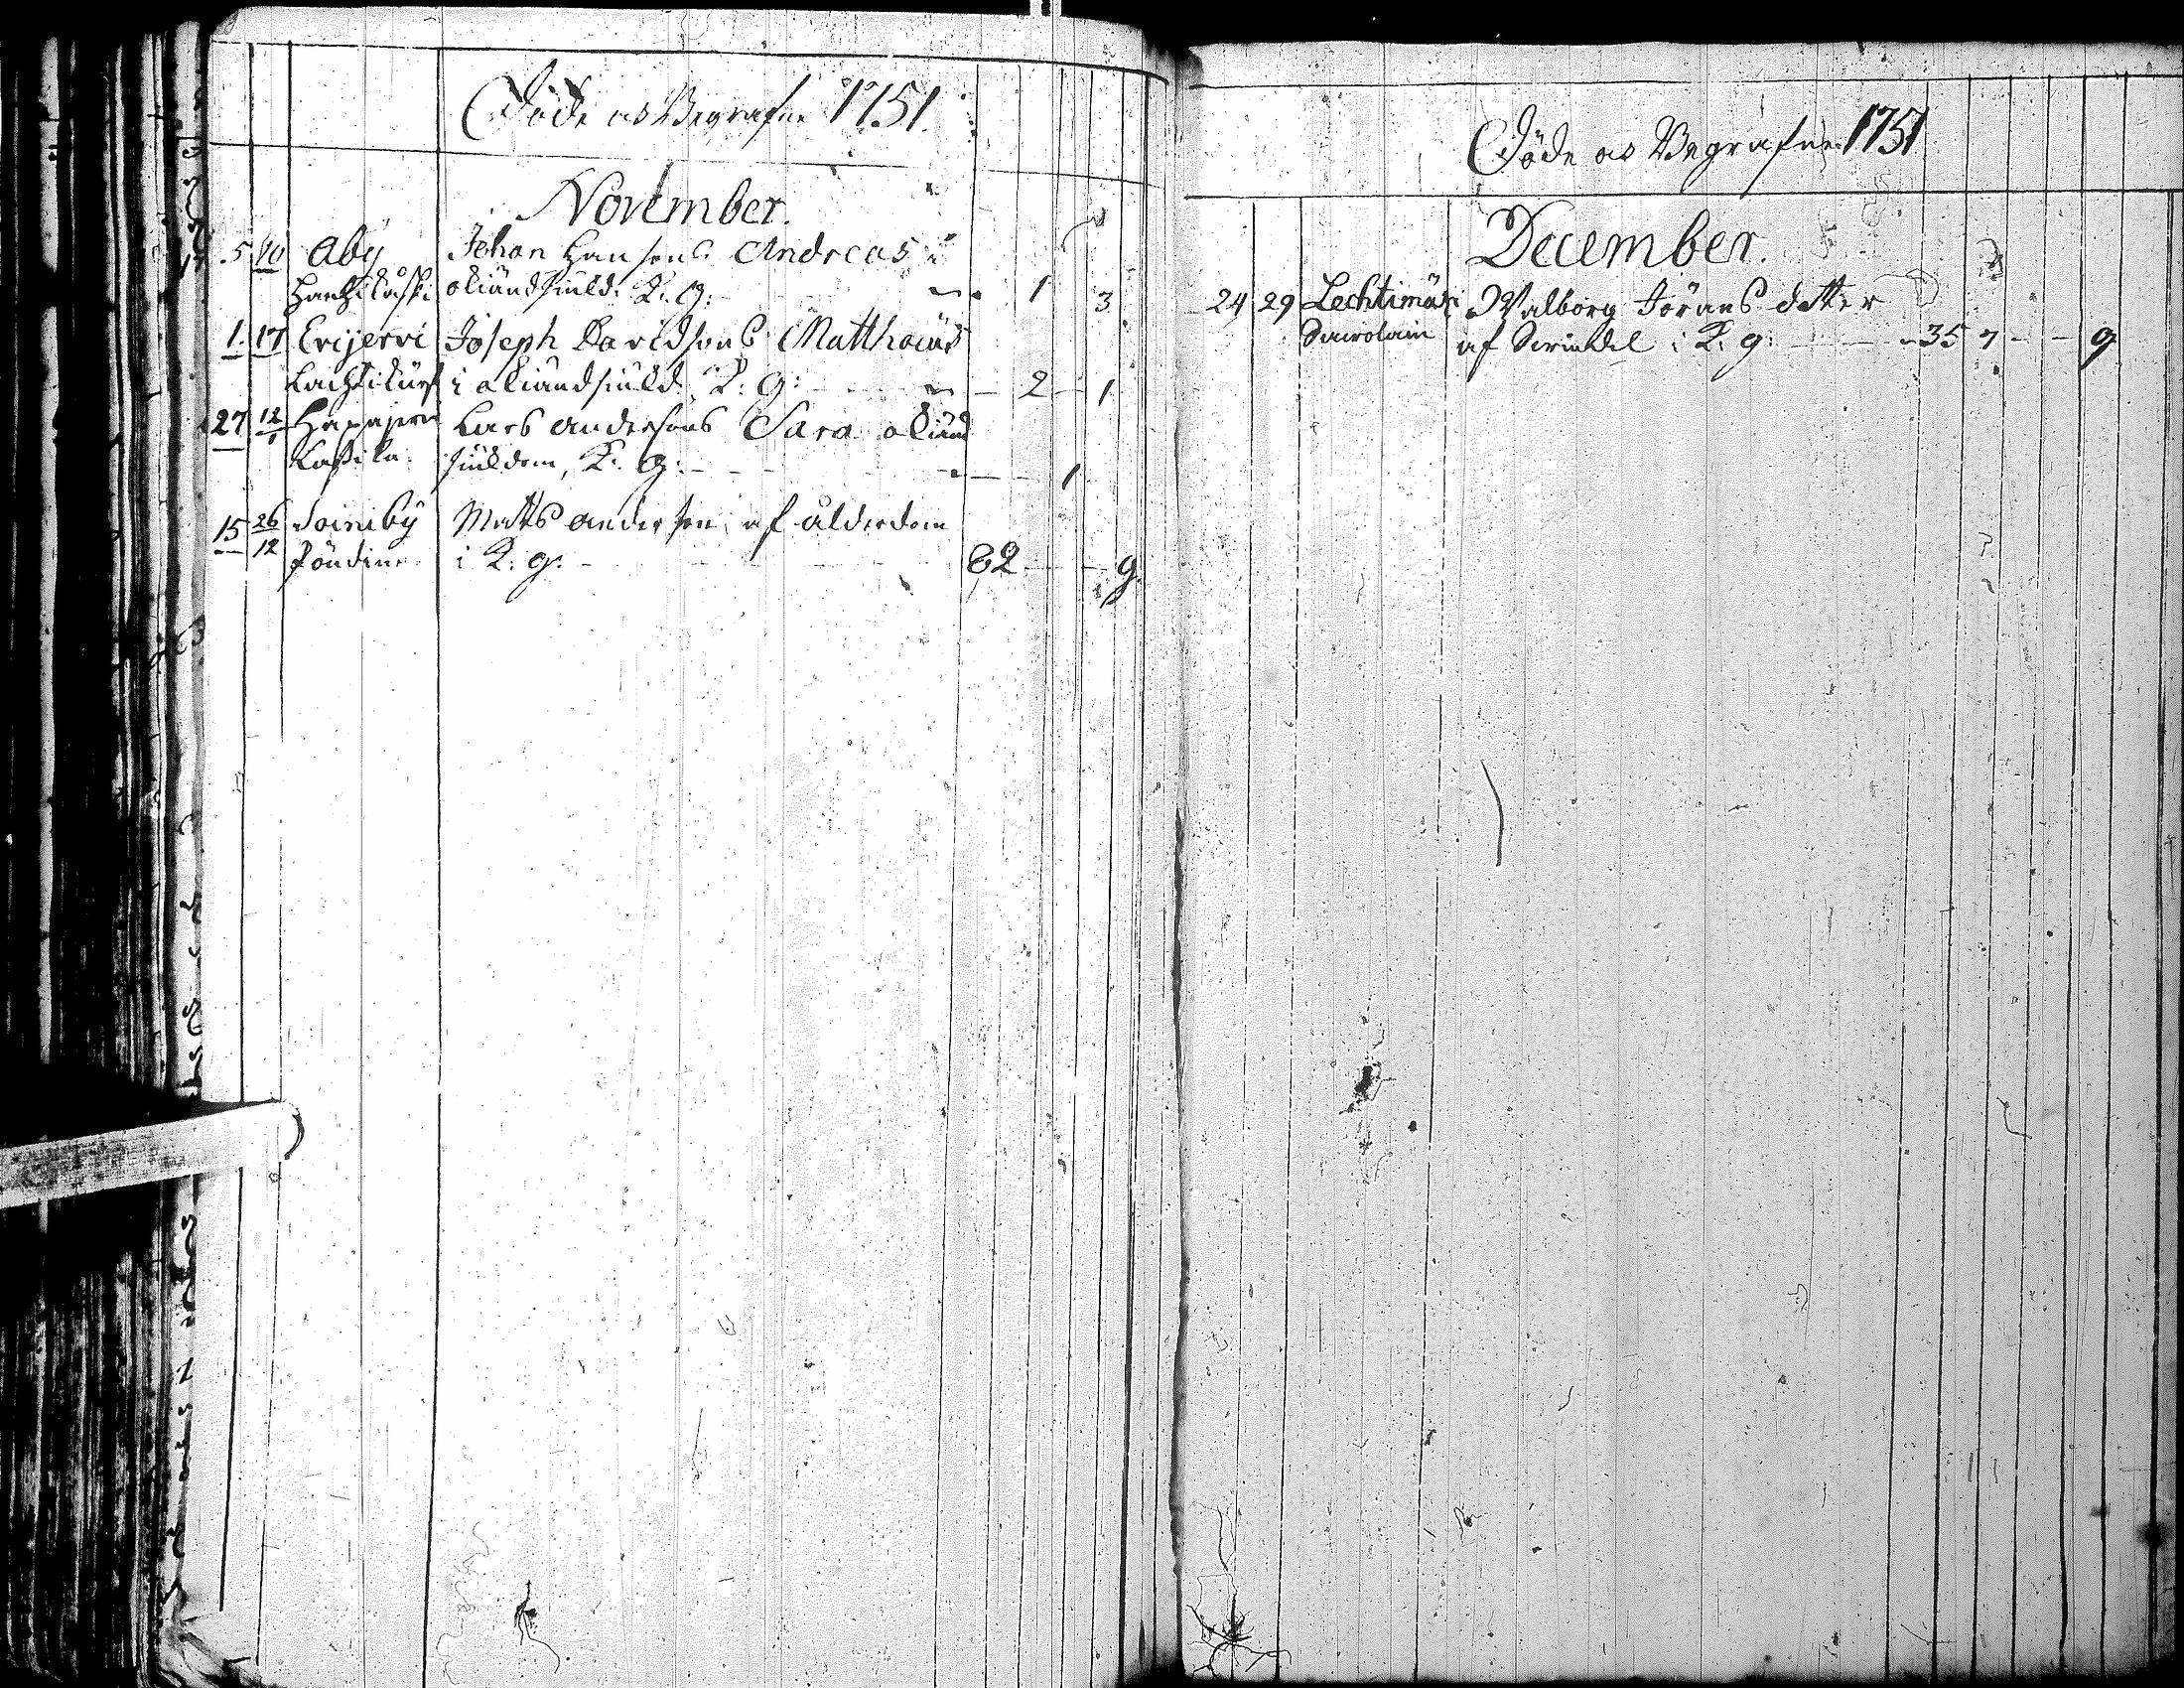 Döde oc Begrafne 1751.
November.
5 10 Åby Johan Hansons Andreas i
okiänd siukd. K. g: 1 3
1. 17 Evijervi Joseph Davidsons Matthæus
i okiänd siukd. K. g: 2 1
27 12/1 Hapajervi Lars Andersons Sara okiänd
Kaskila siukdom, K. g: 1
15 26/12 Soiniby Matts Anderson, af ålderdom
i K. g: 82 g.
Döde oc Begrafne 1751
December.
24 29 Lechtimäki Walborg Jörans dotter
af i K. g: 35 7 g